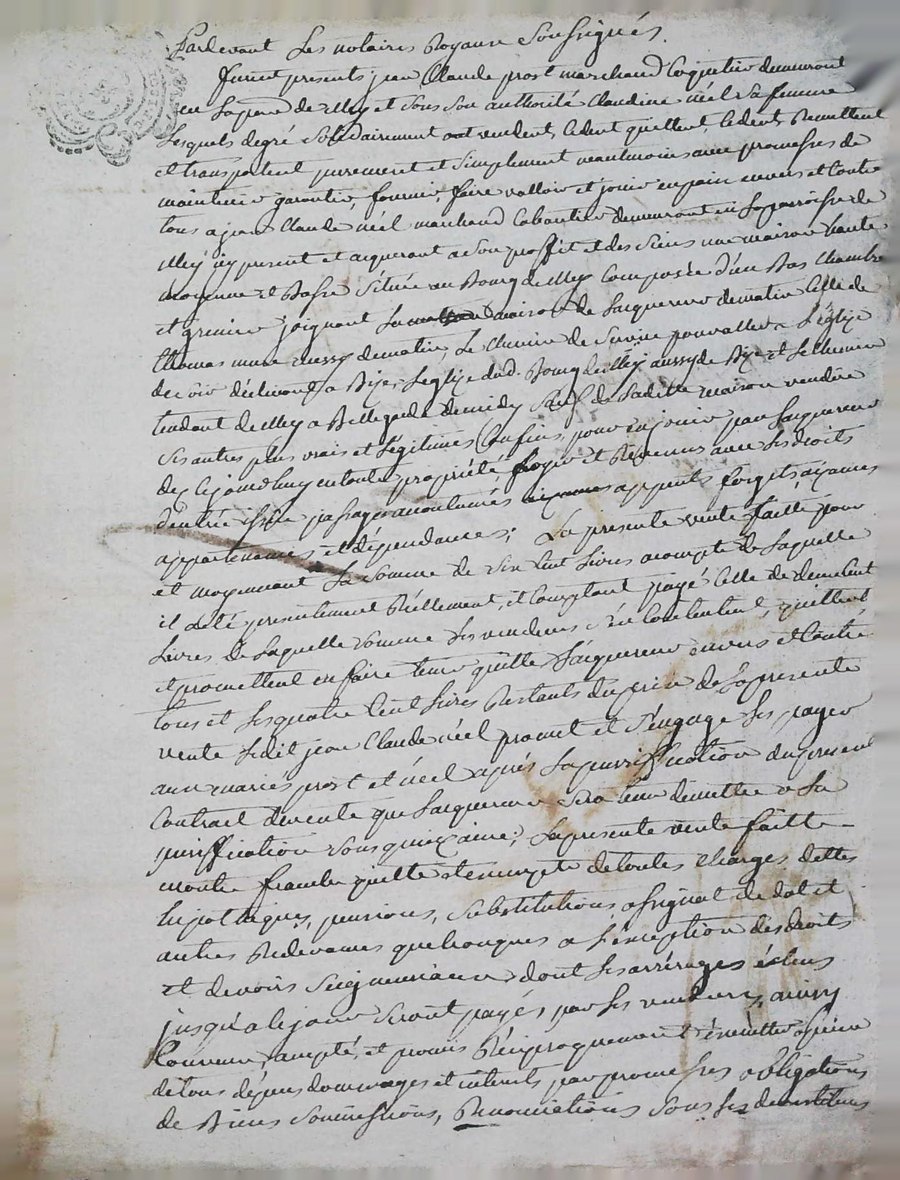 Pardevant Les notaires Royaux Soussignés
furent presents jean Claude prost marchand Coquetier demeurant
en la parr de illey et sous son authorité Claudine néel sa femme
Lesquels degré solidairement ont vendent, cedent quittent, cedent Remettent
et transportent purement et simplement neantmoins avec promesses de
maintenir garantir, fournir, faire valloir et jouir en paix envers et contre
tous a jean Claude néel marchand Cabaretier demeurant en la parroisse de
illey icy present et acquerant a son proffit et des siens une maison haute
moyenne et Basse située au Bourg de illey Composée d'un Bas Chambre
et grenier joignant la maison de Lacquereur de matin celle de
thomas aussy de matin, Le Chemin de servine pour aller a L'église
de soir déclivant, a Bize, Leglise dud. Bourg de illey aussy de Bize et Le chemin
tendant de illey a Bellegarde de midy sauf de Laditte maison vendue
ses autres plus vrais et Légitimes Confins, pour en jouir par Lacquereur
dez cejourdhuy en toute propriété, et Revenus avec ses droits
d'entrée issüe passages accoutumés appents forgets, aizances
appartenances et dependances; La presente vente faitte pour
et moyennant La somme de six Cent Livres acompte de Laquelle
il a été presentement Réellement, et Comptant payé Celle de deux Cent
Livres De Laquelle somme Les vendeurs s'en Contentent, quittent,
et promettent en faire tenir quitte Lacquereur envers et Contre
tous et Les quatre Cent Livres Restants du prix de La presente
vente Ledit jean Claude néel promet et s'engage Les payer
aux mariés prost et néel après La puriffication du present
Contract de vente que Lacquereur sera tenu de mettre a La
puriffication sous quinzaine; La presente vente faitte
franche quitte et exempte de toutes charges dettes
hipothèques, pensions, substitutions, assignat de dot et
autres Redevances quelconques a L'exception des droits
et devoirs seigneuriaux dont Les arrérages échus
jusqu'a ce jour seront payés par Les vendeurs, ainsy
Convenu, accepté, et promis Réciproquement
de tous dépens dommages et interets, par promesses obligations
de Biens soumissions, Renonciations sous Les